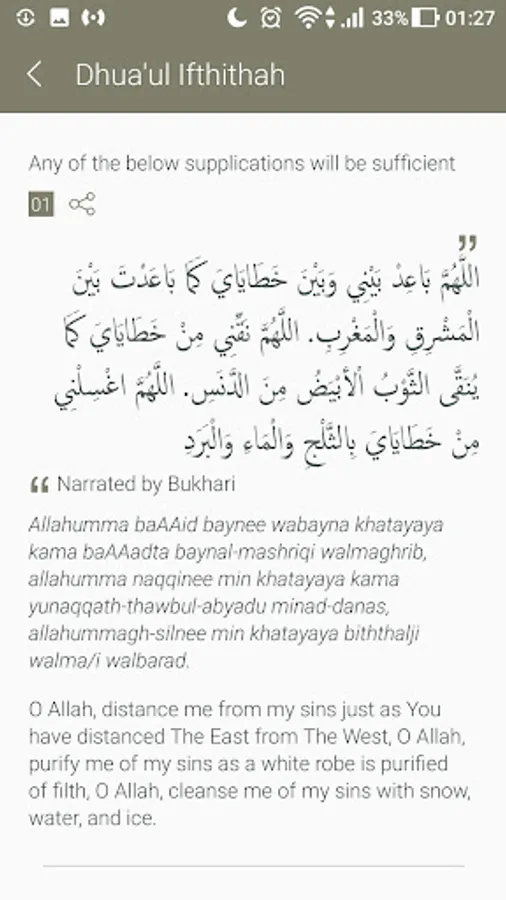 33% 01:27
Dhua'ul Ifthithah
Any of the below supplications will be sufficient
01
”
اللَّهُمَّ بَاعِدْ بَيْنِي وَبَيْنَ خَطَايَايَ كَمَا بَاعَدْتَ بَيْنَ
الْمَشْرِقِ وَالْمَغْرِبِ. اللَّهُمَّ نَقِّنِي مِنْ خَطَايَايَ كَمَا
يُنَقَّى الثَّوْبُ الْأَبْيَضُ مِنَ الدَّنَسِ. اللَّهُمَّ اغْسِلْنِي
مِنْ خَطَايَايَ بِالثَّلْجِ وَالْمَاءِ وَالْبَرَدِ
“ Narrated by Bukhari
Allahumma baAAid baynee wabayna khatayaya
kama baAAadta baynal-mashriqi walmaghrib,
allahumma naqqinee min khatayaya kama
yunaqqath-thawbul-abyadu minad-danas,
allahummagh-silnee min khatayaya biththalji
walma/i walbarad.
O Allah, distance me from my sins just as You
have distanced The East from The West, O Allah,
purify me of my sins as a white robe is purified
of filth, O Allah, cleanse me of my sins with snow,
water, and ice.